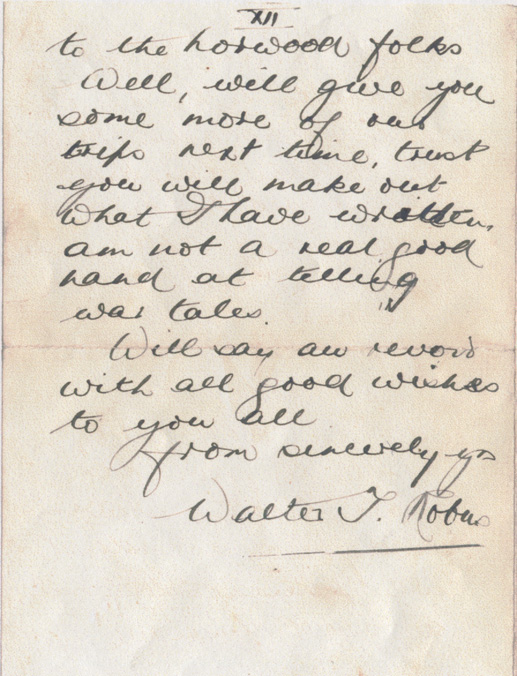 XII
to the horwood folks
Well, will give you
some more of our
trips next time, trust
you will make out
what I have written,
am not a real good
hand at telling
war tales.
Will say au revoir
with all good wishes
to you all
from sincerely yrs
Walter T.